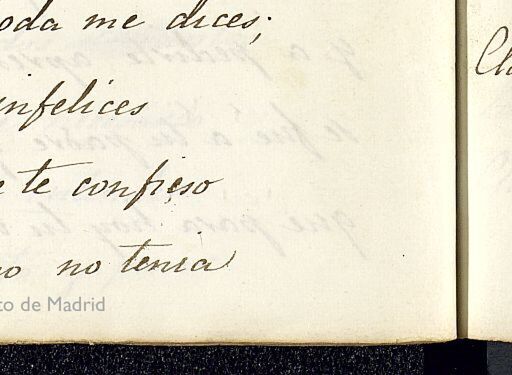 oda me dices;
infelices
e te confieso
no no tenia
to de Madrid
Cla